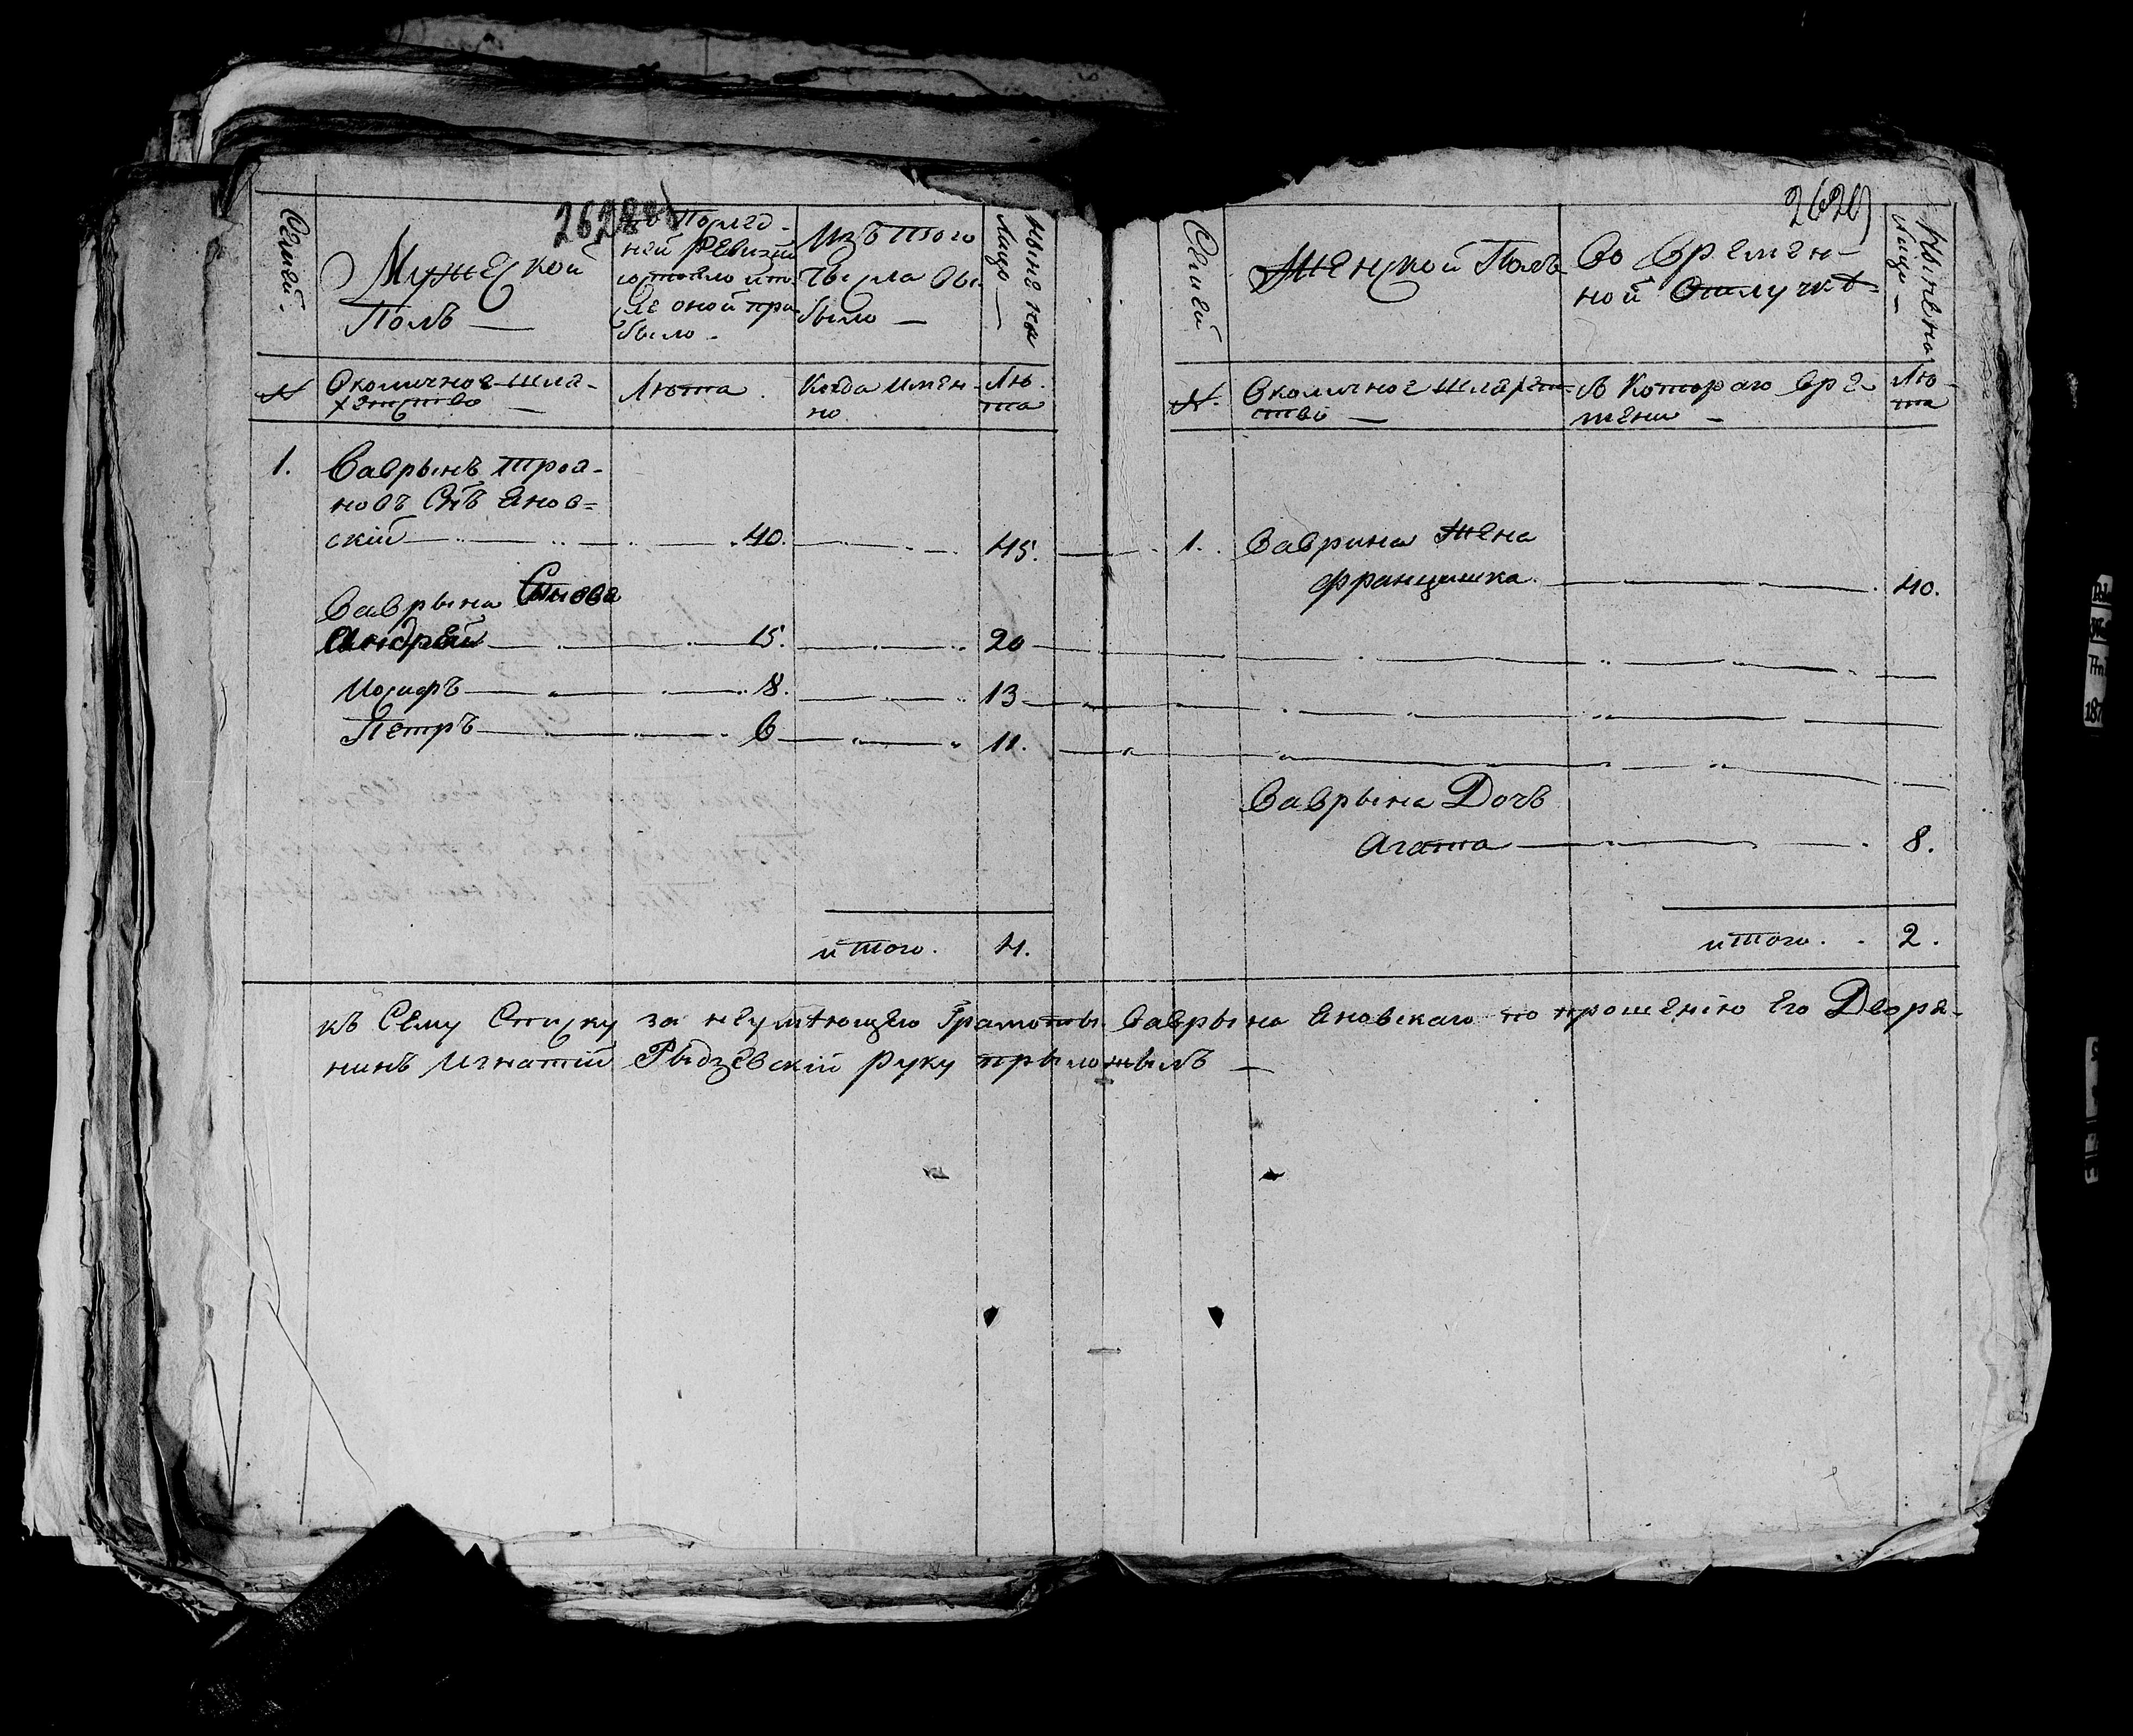 2628
2629
Семей.
Мужеской
Полъ —
По послед-
ней Ревизіи
состояло и по-
сле оной при
было.
Изъ того
Числа вы
было —
Ныне на
Лицо —
№
Околичное шля-
хетство —
Лѣта
Когда имен-
но.
Лѣ-
та
1.
Ваврынъ Троя-
новъ Снъ Янов=
скій 40. 45.
Ваврына Сыновья
Андрей 15. 20
Иосифъ 8. 13
Петръ 6 11.
итого. 4.
Семей
Женской Полъ
Во Времен-
ной Отлучкѣ
Ныне на
лицо —
№.
Околичное шляхет-
ство —
Съ Котораго Вре-
мени —
Лѣ-
та
1. Ваврина Жена
Францишка 40.
Ваврына Дочь
Агата 8.
итого. 2.
къ Сему Списку за неумѣющего Грамоты Ваврына Яновскаго по прошенію Его Дворя-
нинъ Игнатій Рыдзевскій руку прыложылъ —